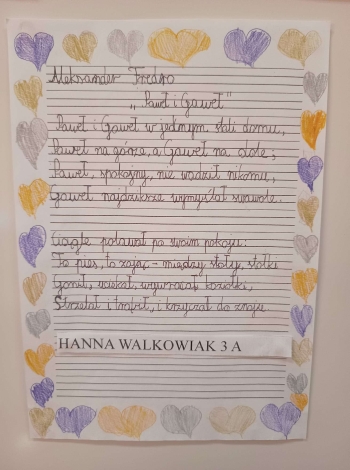 Aleksander Fredro
„Paweł i Gaweł"
Paweł i Gaweł w jednym stali domu,
Paweł na górze, a Gaweł na dole;
Paweł, spokojny, nie wadził nikomu,
Gaweł najdziksze wymyślał swawole.
Ciągle polował po swoim pokoju:
To pies, to zając – między stoły, stołki
Gonił, uciekał, wywracał koziołki,
Strzelał i trąbił, i krzyczał do znoju.
HANNA WALKOWIAK 3 A